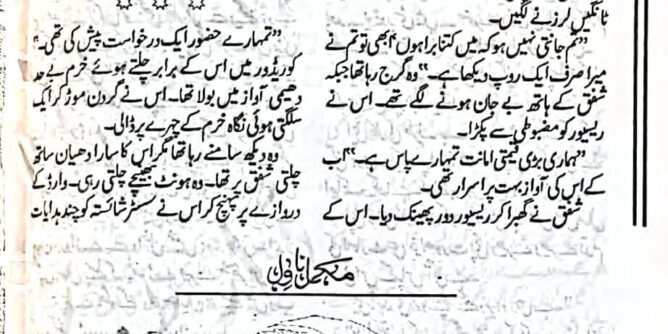 ٹانگیں لرزنے لگیں۔
”تم جانتی نہیں ہو کہ میں کتنا برا ہوں‘ ابھی تو تم نے
میرا صرف ایک روپ دیکھا ہے۔“ وہ گرج رہا تھا جبکہ
شفق کے ہاتھ بے جان ہونے لگے تھے۔ اس نے
ریسیور کو مضبوطی سے پکڑا۔
”ہماری بڑی قیمتی امانت تمہارے پاس ہے۔“ اب
کے اس کی آواز بہت پراسرار تھی۔
شفق نے گھبرا کر ریسیور دور پھینک دیا۔ اس کے
”تمہارے حضور ایک درخواست پیش کی تھی۔“
کوریڈور میں اس کے برابر چلتے ہوئے خرم بے حد
دھیمی آواز میں بولا تھا۔ اس نے گردن موڑ کر ایک
سلگتی ہوئی نگاہ خرم کے چہرے پر ڈالی۔
وہ دیکھ سامنے رہا تھا مگر اس کا سارا دھیان ساتھ
چلتی شفق پر تھا۔ وہ ہونٹ بھینچے چلتی رہی۔ وارڈ کے
دروازے پر پہنچ کر اس نے سسٹر شائستہ کو چند ہدایات
مکمل ناول